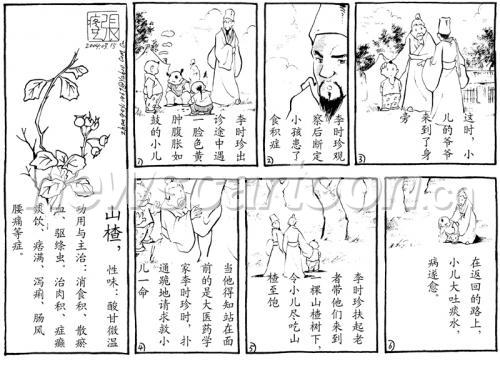 張
2004.03.15
山楂，性味：酸甘微温
功用与主治：消食积、散瘀
血、驱绦虫、治肉积、症
痰饮、痞满、泻痢、肠风
腰痛等症。
李时珍出
诊途中遇
一脸色黄
肿腹胀如
鼓的小儿
1
李时珍观
察后断定
小孩患了
食积症
2
这时，小
儿的爷爷
来到了身
旁
3
当他得知站在面
前的是大医药学
家李时珍时，扑
通跪地请求救小
儿一命
4
李时珍扶起老
者带他们来到
一棵山楂树下，
令小儿尽吃山
楂至饱
5
在返回的路上，
小儿大吐痰水，
病遂愈。
6
newscartoon.cn